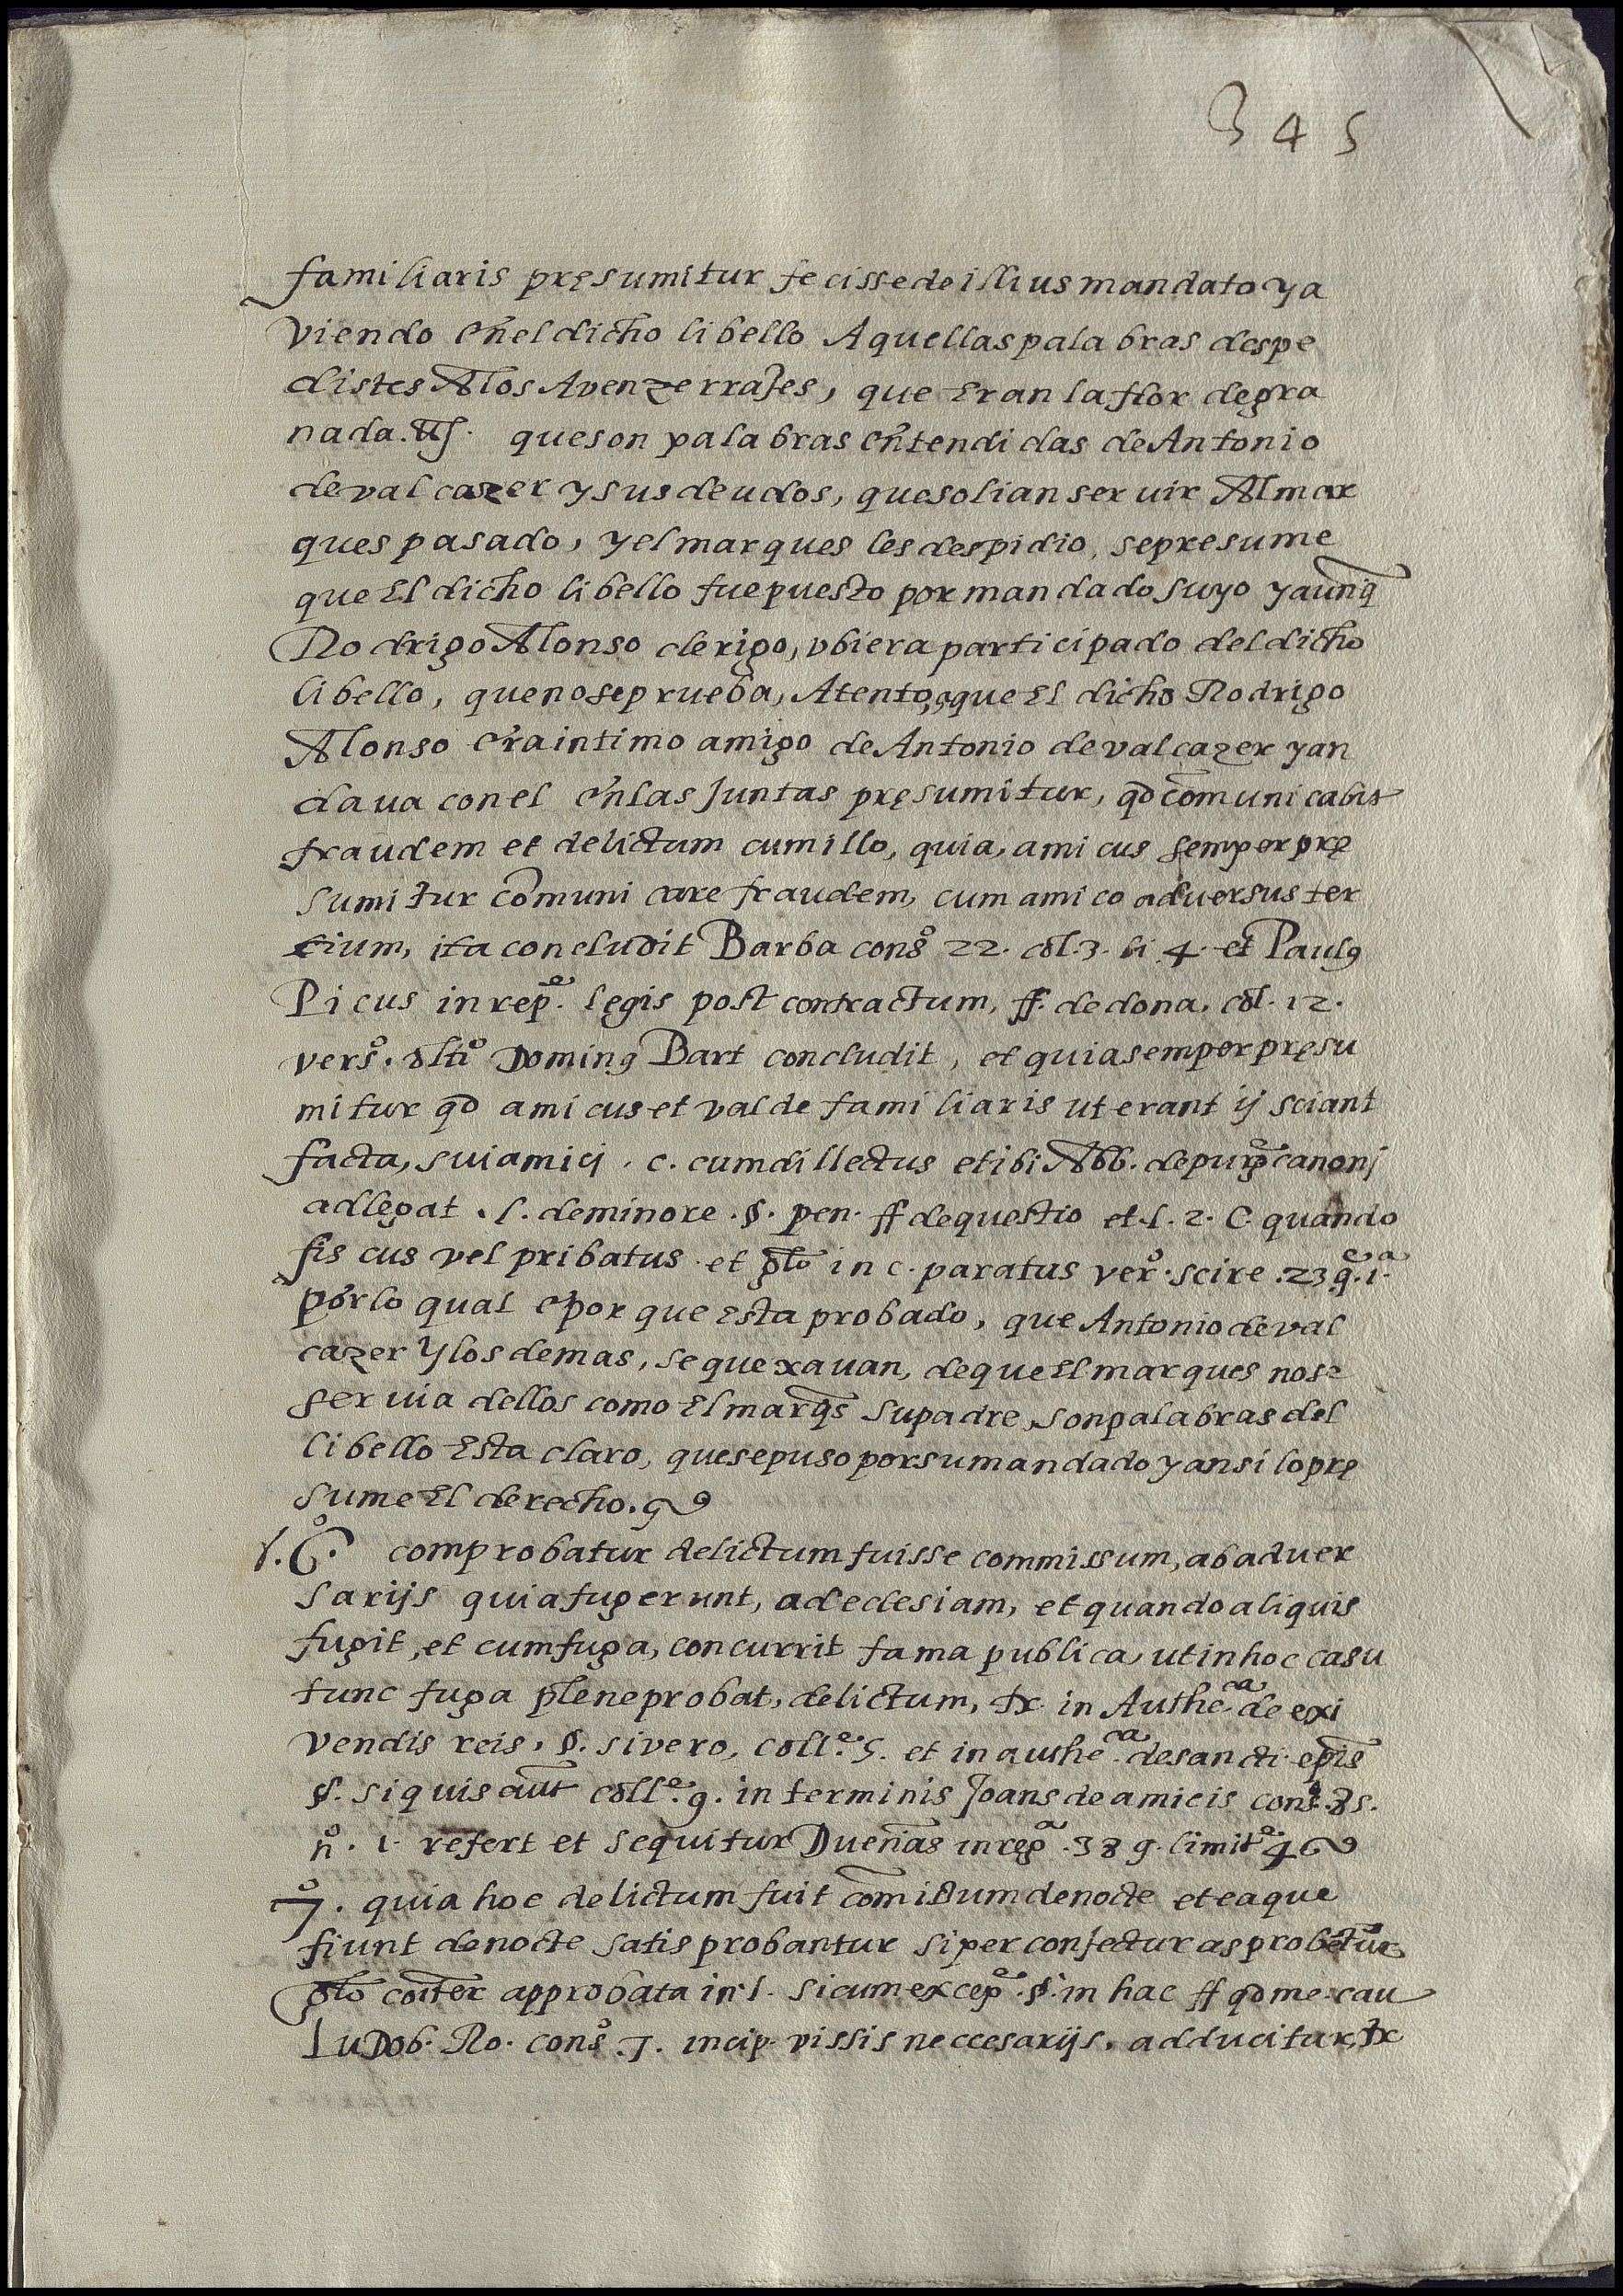 345
familiaris pręsumitur fecisse de illius mandato y a
viendo en el dicho libello Aquellas palabras despe
distes Alos Avenzerrajes, que Eran la flor de gra
nada. que son palabras entendidas de Antonio
de valcazer y sus deudos, que solian seruir Al mar
ques pasado, y el marques les despidio, se presume
que El dicho libello fue puesto por mandado suyo y aunq̃
Rodrigo Alonso clerigo, vbiera participado del dicho
libello, que no se prueba, Atento, que El dicho Rodrigo
Alonso era intimo amigo de Antonio de valcazer y an
daua con el en las Juntas pręsumitur, qd comunicabit
fraudem et delictum cum illo, quia, amicus semper prę
sumitur comunicare fraudem, cum amico aduersus ter
tium, ita concludit Barba consº 22. col. 3. li 4. et Paulꝯ
Picus in repᵉ. legis post contractum, ff. de dona. col. 12.
versº. vltiº Dominꝯ Bart concludit, et quia semper pręsu
mitur qd amicus et valde familiaris ut erant ij sciant
facta, sui amici. c. cum dillectus et ibi Abb. de purgᵉ canonj
adlegat. l. de minore. §. pen. ff de questio et. l. 2. C. quando
fiscus vel pribatus. et glo in c. paratus verº. scire. 23 qᵉ. 1ᵃ.
por lo qual e por que Esta probado, que Antonio de val
cazer y los demas, se quexauan, de que El marques no se
seruia dellos como El marq̃s su padre, son palabras del
libello Esta claro, que se puso por su mandado y ansi lo prę
sume El derecho.
6º. comprobatur delictum fuisse commissum, ab aduer
sarijs quia fugerunt, ad eclesiam, et quando aliquis
fugit, et cum fuga, concurrit fama publica, ut in hoc casu
tunc fuga plene probat, delictum, tx. in Autheᶜᵃ. de exi
vendis reis. §. si vero, collᵉ. 5. et inautheᶜᵃ. de sancti. epis
§. si quis aut collᵉ. 9. in terminis Joans de amicis consº. 85.
nº. 1. refert et sequitur Dueñas in regᵃ. 389. limitᵉ 4
7º. quia hoc delictum fuit comissum de nocte et ea que
fiunt de nocte satis probantur si per conjecturas probetur
glo coiter approbata in l. si cum excepᵉ. §. in hac ff qd me cau
Ludob. Ro. consº. 7. incip. vissis neccesarijs. adducitur, tx